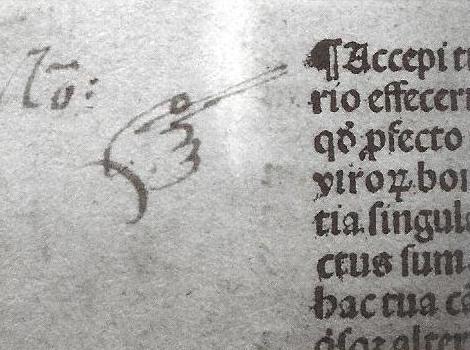 No:
¶Accepi
rio effecer
qđ ꝓfecto
viroꝝ bo
tia singul
ctus sum
hac tua cō